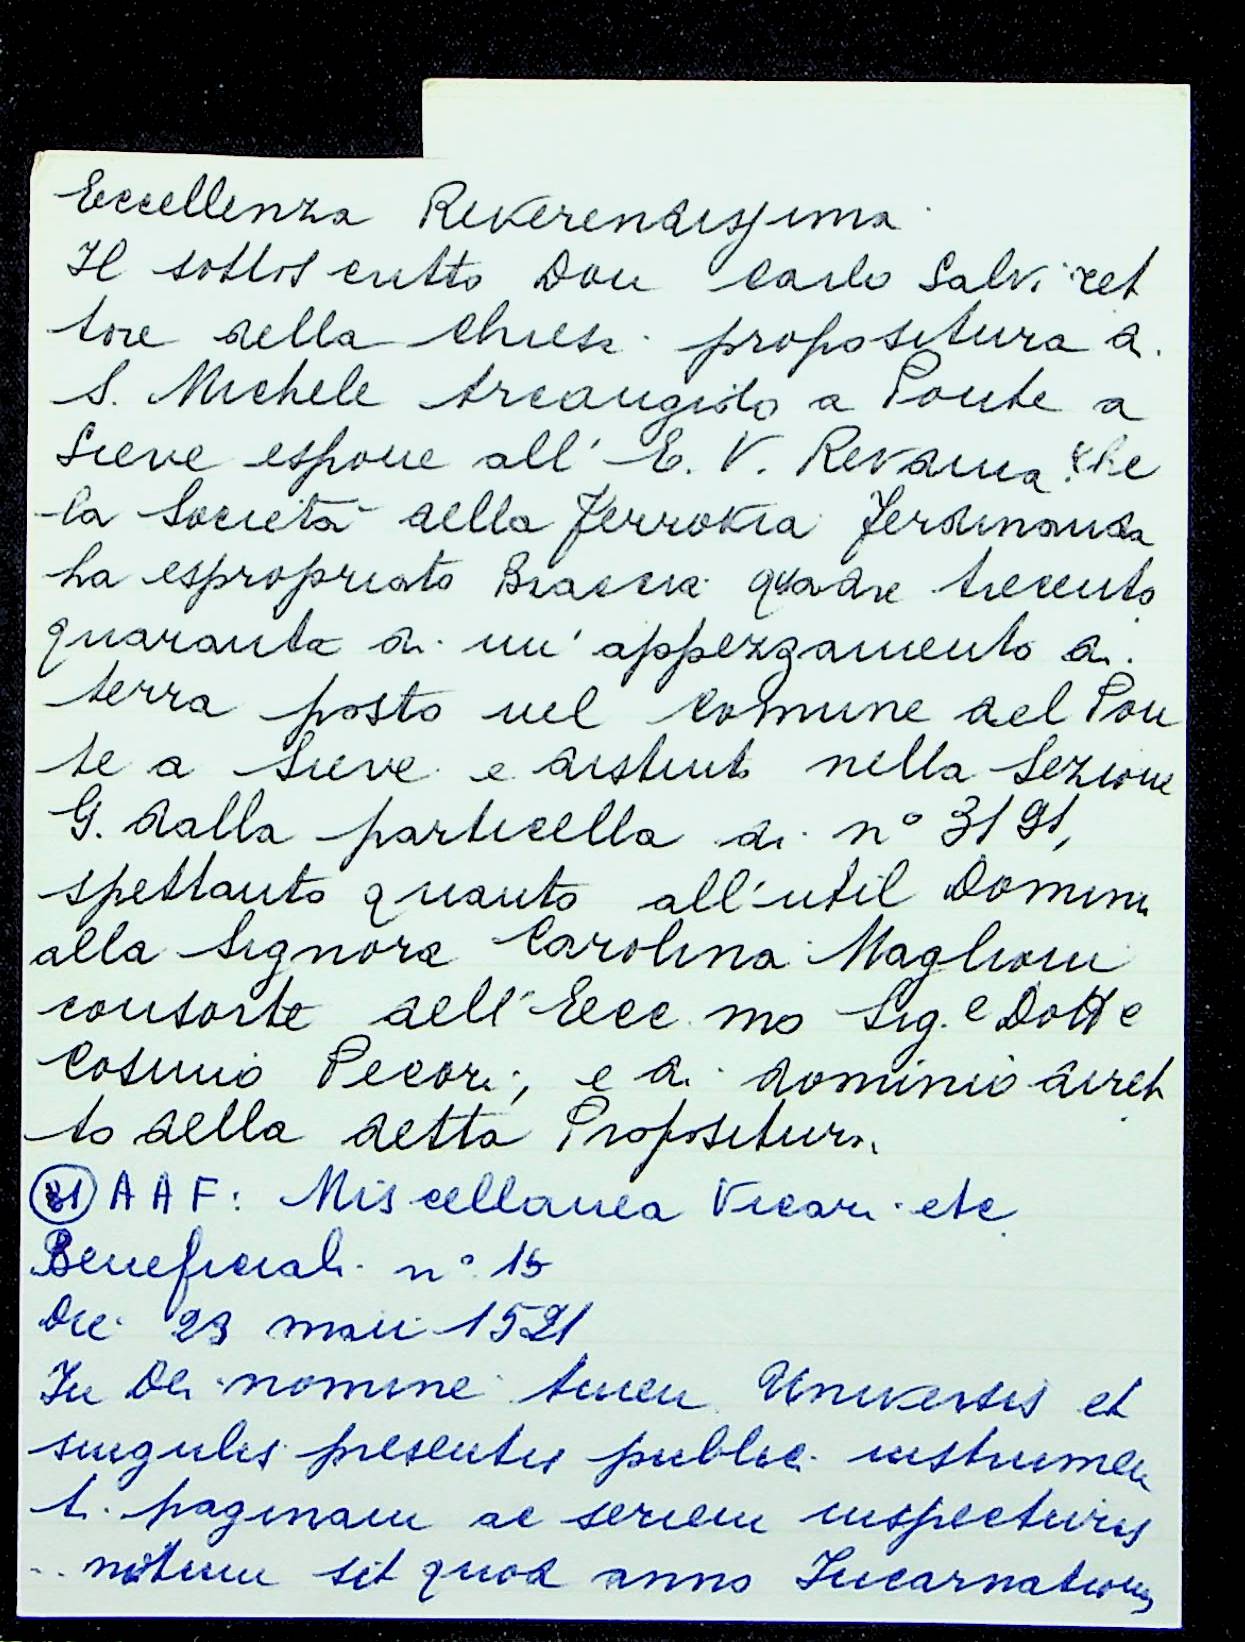 Eccellenza Reverendissima
Il sottoscritto Don Carlo Salvi ret
tore della Chiesa propositura di
S. Michele Arcangiolo a Ponte a
Sieve espone all' E. V. Revdma che
la Società della Ferrovia Ferdinanda
ha espropriato Braccia quadre trecento
quaranta di un' appezzamento di
terra posto nel Comune del Pon
te a Sieve e distinto nella Sezione
G. dalla particella di n° 3191,
spettanto quanto all'util Dominio
alla Signora Carolina Maglioni
consorte dell'Ecc mo Sig.e Dotte
Cosimo Pecori, e di dominio diret
to della detta Propositura
31 A A F: Miscellanea Vicari etc
Beneficiali n° 15
Die 23 maii 1521
In Dei nomine Amen Universis et
singulis presentis publici instrumen
ti paginam ac seriem inspecturis
notum sit quod anno Incarnationis